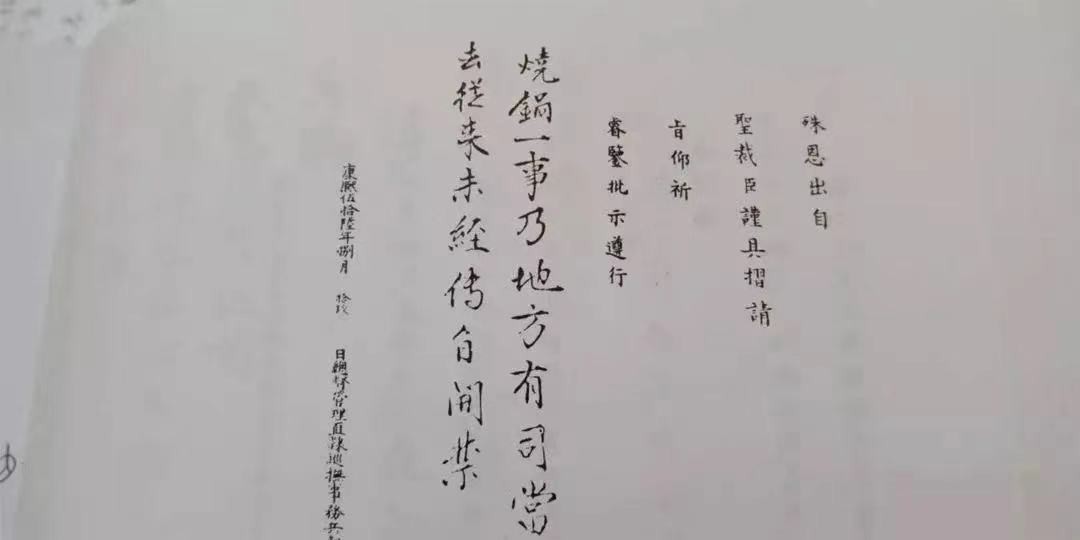 殊恩出自
聖裁臣謹具摺請
旨仰祈
睿鑒批示遵行
燒鍋一事乃地方有司當
去從来未經傳旨開禁
康熙伍拾陸年捌月
日總督管理直隸巡撫事務兵